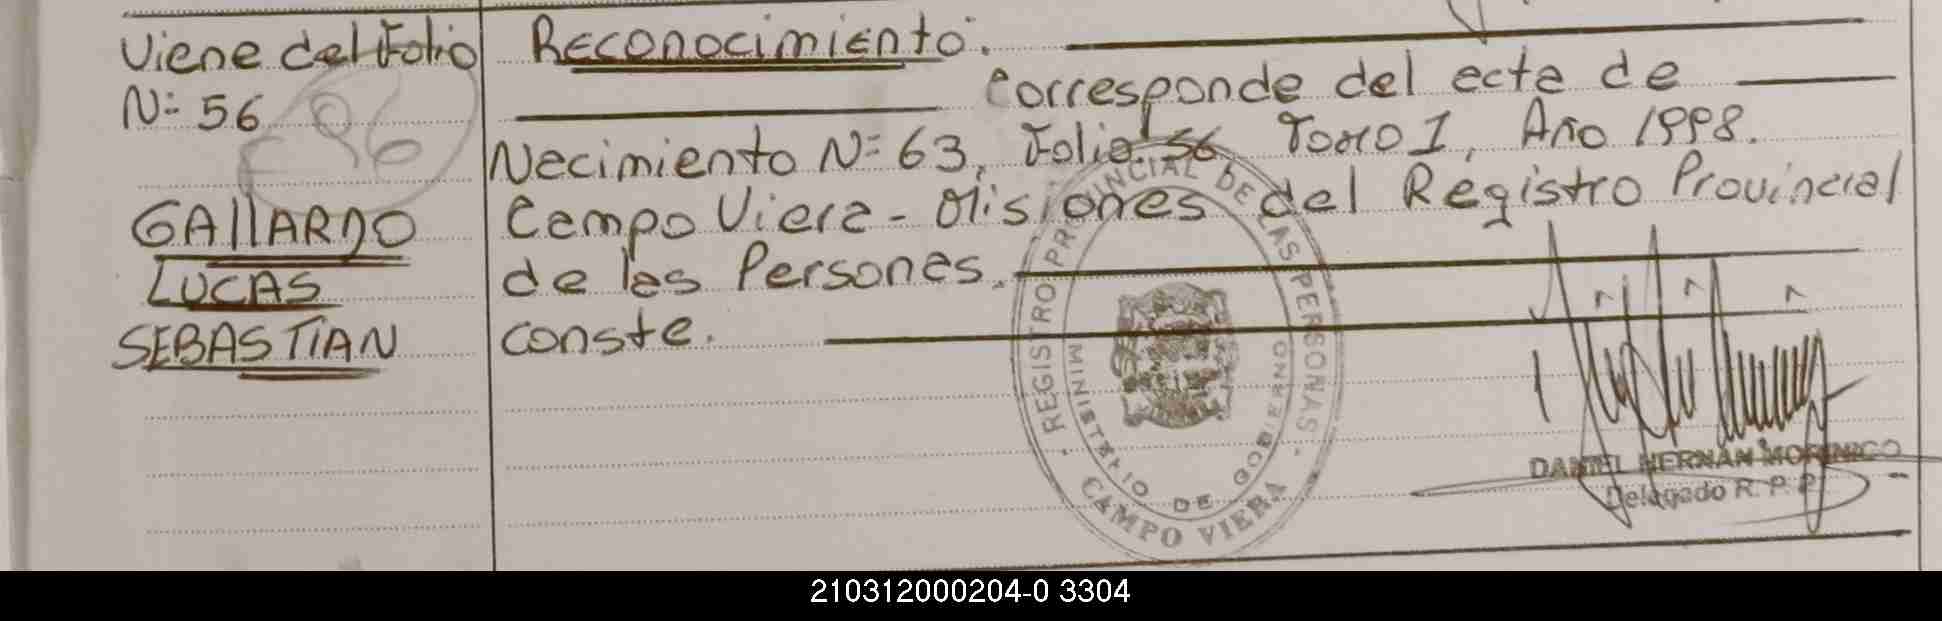 Viene del Folio
N: 56
56
GALLARDO
LUCAS
SEBASTIAN
Reconocimiento.
Corresponde del acta de
Nacimiento N: 63, Folio 56, Tomo I, Año 1998.
Campo Viera - Misiones del Registro Provincial
de las Personas.
conste.
REGISTRO PROVINCIAL DE LAS PERSONAS
MINISTERIO DE GOBIERNO
CAMPO VIERA
DANIEL HERNÁN MORINIGO
Delegado R. P. P.
210312000204-0 3304